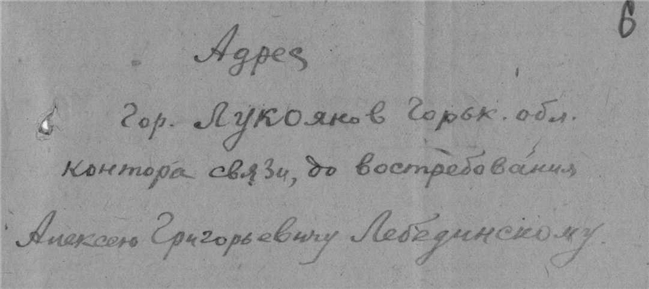 6
Адрес
Гор. Лукоянов Горьк. обл.
контора связи, до востребования
Алексею Григорьевичу Лебединскому.